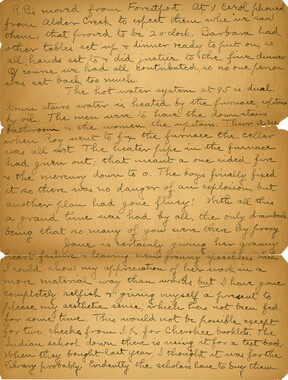 R Bs moved from Forestport. At 1 Cerol phoned
from Alder Creek to expect them whe we saw
them, that proved to be 2 o'clock. Barbara had
other tables set up & dinner ready to put on, so
all hands set to & did justice to the fine dinner
Of course we had all contributed, so no one person
was set back too much.
The hot water system at 95 is dual
Down stairs water is heated by the furnace, upstairs
by oil. The men were to have the downstairs
bathroom & the women the upstairs. Then
when Ray went to fix the furnace the cellar
was all wet. The heater pipe in the furnace
had burn out, that meant a one sided fire
& the mercury down to 0. The boys finally fixed
it so there was no danger of an explosion, but
another plan had gone fluey! With all this
a grand time was had by all, the only drawback
being that so many of you were there by proxy
Jane is certainly giving her granny
heart failure & leaving said granny speechless. Wish
I could show my appreciation of her work in a
more material way than words but I have gone
completely selfish & giving myself a present to
please my aesthetic sense which has not been fed
for some time. This would not be possible except
for two checks from I.K for Cherokee booklets. The
Indian school down there is using it for a text book
When they bought last year I thought it was for the
library probably. Evidently the scholars have to buy them